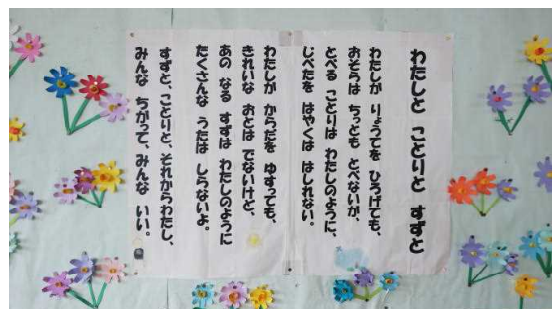 わたしと ことりと すずと
わたしが りょうてを ひろげても、
おそらは ちっとも とべないが、
とべる ことりは わたしのように、
じべたを はやくは はしれない。
わたしが からだを ゆすっても、
きれいな おとは でないけど、
あの なる すずは わたしのように
たくさんな うたは しらないよ。
すずと、ことりと、それからわたし、
みんな ちがって、みんな いい。